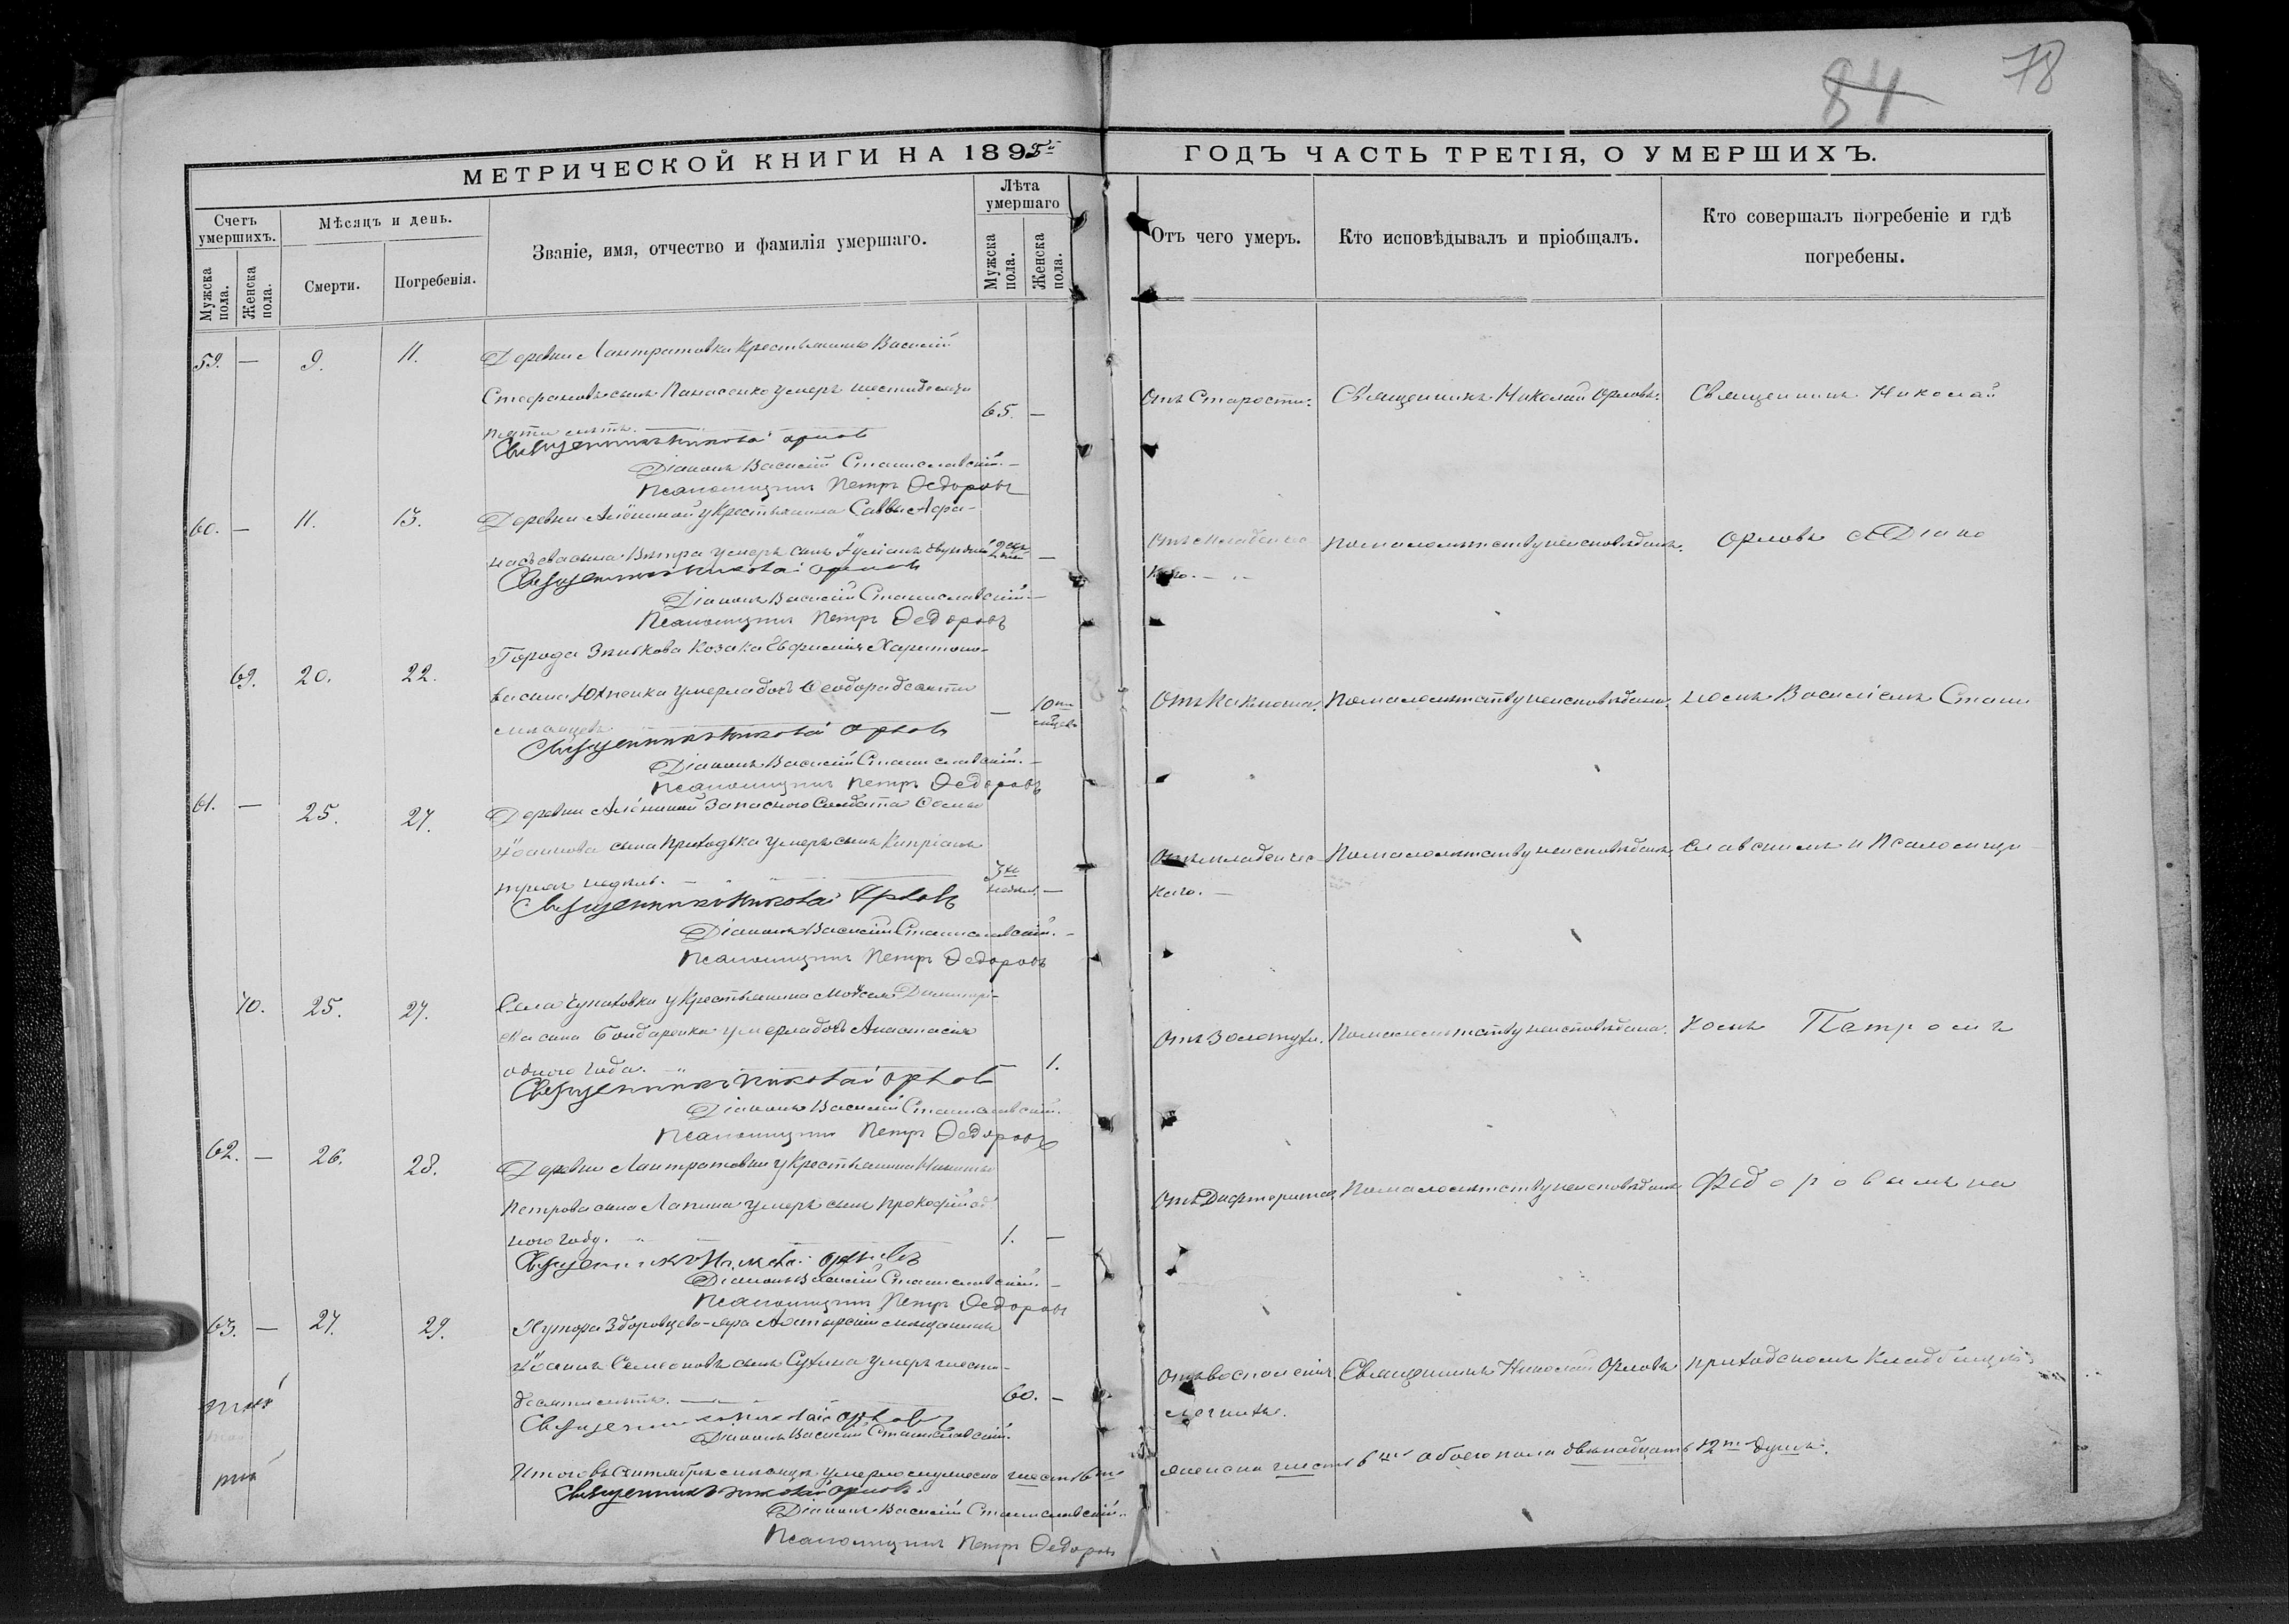 84 78
МЕТРИЧЕСКОЙ КНИГИ НА 1895й ГОДЪ ЧАСТЬ ТРЕТІЯ, О УМЕРШИХЪ.
Счетъ умершихъ.
Мужска пола.
Женска пола.
Мѣсяцъ и день.
Смерти.
Погребенія.
Званіе, имя, отчество и фамилія умершаго.
Лѣта умершаго
Мужска пола.
Женска пола.
Отъ чего умеръ.
Кто исповѣдывалъ и пріобщалъ.
Кто совершалъ погребеніе и гдѣ
погребены.
59. — 9. 11. Деревни Лантратовки крестьянинъ Василій
Стефановъ сынъ Панасенко умеръ шестидесяти
пяти лѣтъ. 65. —
Отъ Старости. Священникъ Николай Орловъ. Священникъ Николай
Священникъ Николай Орловъ
Діаконъ Василій Станиславскій.
Псаломщикъ Петръ Ѳедоровъ
60. — 11. 13. Деревни Алёшиной у крестьянина Саввы Афа-
насьева сына умеръ сынъ Іуліанъ
Отъ младенчес
каго. По малолѣтству неисповѣданъ. Орловъ съ Діако
Священникъ Николай Орловъ
Діаконъ Василій Станиславскій
Псаломщикъ Петръ Ѳедоровъ
69. 20. 22. Города Зѣнькова козака Евфимія Харитоно-
ва сына Юхненка умерла дочь Ѳеодора десяти
мѣсяцевъ — 10ти мѣсяцевъ
По малолѣтству неисповѣдана. номъ Василіемъ Стани
Священникъ Николай Орловъ
Діаконъ Василій Станиславскій.
Псаломщикъ Петръ Ѳедоровъ
61. — 25. 27. Деревни Алёшиной запасного солдата
Іоаннова сына Приходька умеръ сынъ Кипріанъ
трехъ недѣль. 3хъ недѣль —
Отъ младенчес
каго. По малолѣтству неисповѣданъ. славскимъ и Псаломщи
Священникъ Николай Орловъ
Діаконъ Василій Станиславскій.
Псаломщикъ Петръ Ѳедоровъ
70. 25. 27. Села Чупаховки у крестьянина Моѵсея Димитрі-
ева сына Бондаренка умерла дочь Анастасія
одного года. — 1.
Отъ золотухи. По малолѣтству неисповѣдана. комъ Петромъ
Священникъ Николай Орловъ
Діаконъ Василій Станиславскій.
Псаломщикъ Петръ Ѳедоровъ
62. — 26. 28. Деревни Лантратовки у крестьянина Никиты
Петрова сына Лапина умеръ сынъ Прокофій од
ного году. 1. —
Отъ Дифтерита. По малолѣтству неисповѣданъ. Ѳедоровымъ на
Священникъ Николай Орловъ
Діаконъ Василій Станиславскій.
Псаломщикъ Петръ Ѳедоровъ
63. — 27. 29. Хутора Здоровцева-Яра Ахтырскій мѣщанинъ
Іоаннъ Симеоновъ сынъ Сухина умеръ шести-
десяти лѣтъ. 60. —
Отъ воспаленія
легкихъ. Священникъ Николай Орловъ приходскомъ кладбищѣ.
Священникъ Николай Орловъ
Діаконъ Василій Станиславскій.
Итого въ Сентябрѣ мѣсяцѣ умерло мужеска шесть 6ть женска шесть 6ть обоего пола двѣнадцать 12ть душъ.
Священникъ Николай Орловъ.
Діаконъ Василій Станиславскій.
Псаломщикъ Петръ Ѳедоровъ